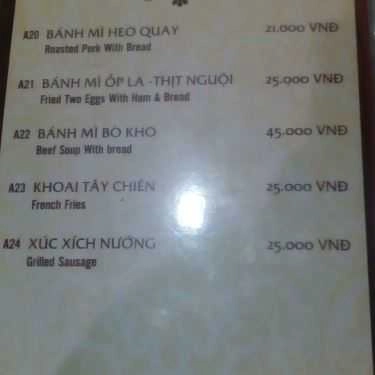 A20 BÁNH MÌ HEO QUAY 21.000 VNĐ
Roasted Pork With Bread
A21 BÁNH MÌ ỐP LA -THỊT NGUỘI 25.000 VNĐ
Fried Two Eggs With Ham & Bread
A22 BÁNH MÌ BÒ KHO 45.000 VNĐ
Beef Soup With bread
A23 KHOAI TÂY CHIÊN 25.000 VNĐ
French Fries
A24 XÚC XÍCH NƯỚNG 25.000 VNĐ
Grilled Sausage